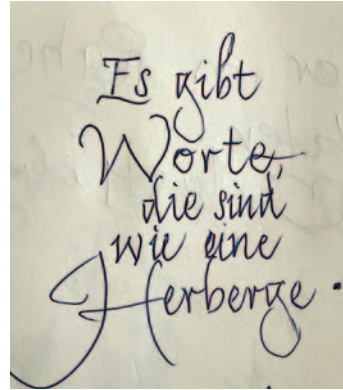 Es gibt
Worte,
die sind
wie eine
Herberge.